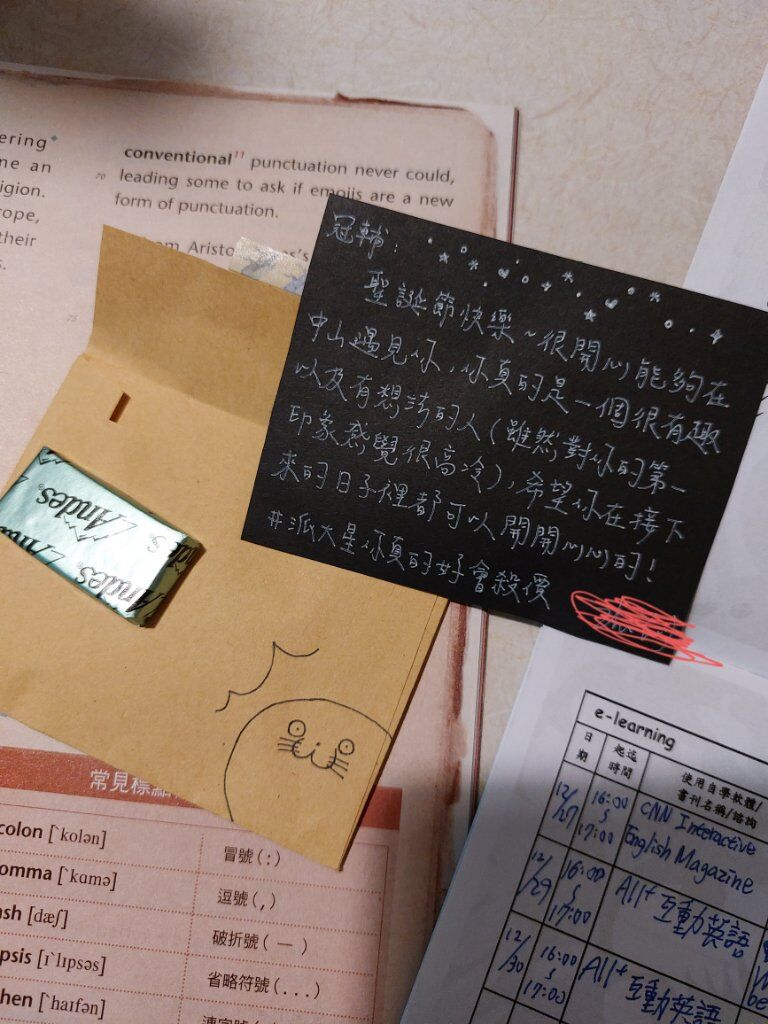 ering
ne an
igion.
rope,
their
s.
conventional¹¹ punctuation never could,
70 leading some to ask if emojis are a new
form of punctuation.
om Aristo
's
75
冠輔：
聖誕節快樂~很開心能夠在
中山遇見你，你真的是一個很有趣
以及有想法的人(雖然對你的第一
印象感覺很高冷)，希望你在接下
來的日子裡都可以開開心心的！
#派大星你真的好會殺價
Andes
Andes
Andes
常見標點
colon [ˋkolən] 冒號(:)
omma [ˋkɑmə] 逗號(,)
ash [dæʃ] 破折號(—)
psis [ɪˋlɪpsəs] 省略符號(...)
hen [ˋhaɪfən]
e-learning
日期 起迄時間 使用自學軟體/書刊名稱/諮詢
12/27 16:00 ~ 17:00 CNN Interactive English Magazine
12/29 16:00 ~ 17:00 All+ 互動英語
12/30 16:00 ~ 17:00 All+ 互動英語